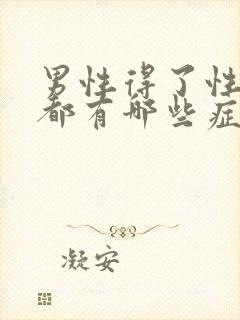 男性得了性
都有哪些症
凝安